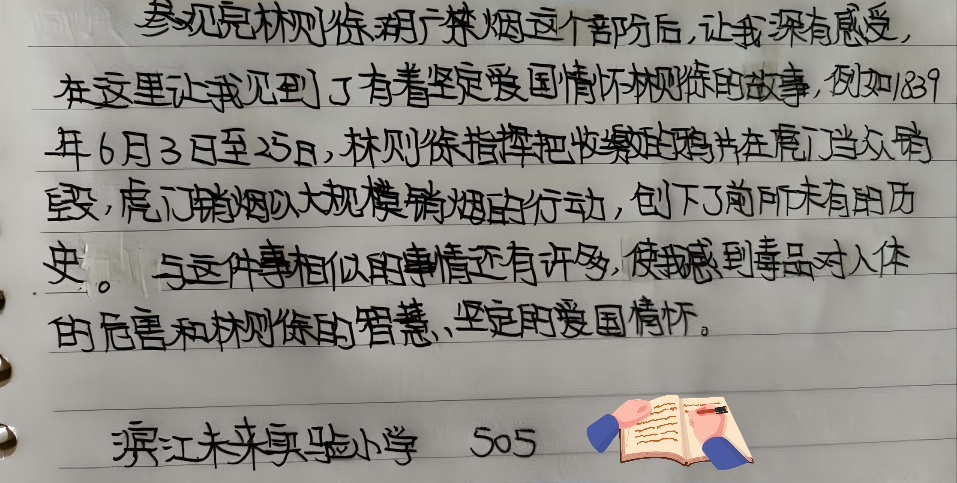 参观完林则徐湖广禁烟这个部分后,让我深有感受,
在这里让我见到了有着坚定爱国情怀林则徐的故事,例如1839
年6月3日至25日,林则徐指挥把收缴的鸦片在虎门当众销
毁,虎门销烟以大规模销烟的行动,创下了前所未有的历
史。与这件事相似的事情还有许多,使我感到毒品对人体
的危害和林则徐的智慧、坚定的爱国情怀。
滨江未来实验小学 505